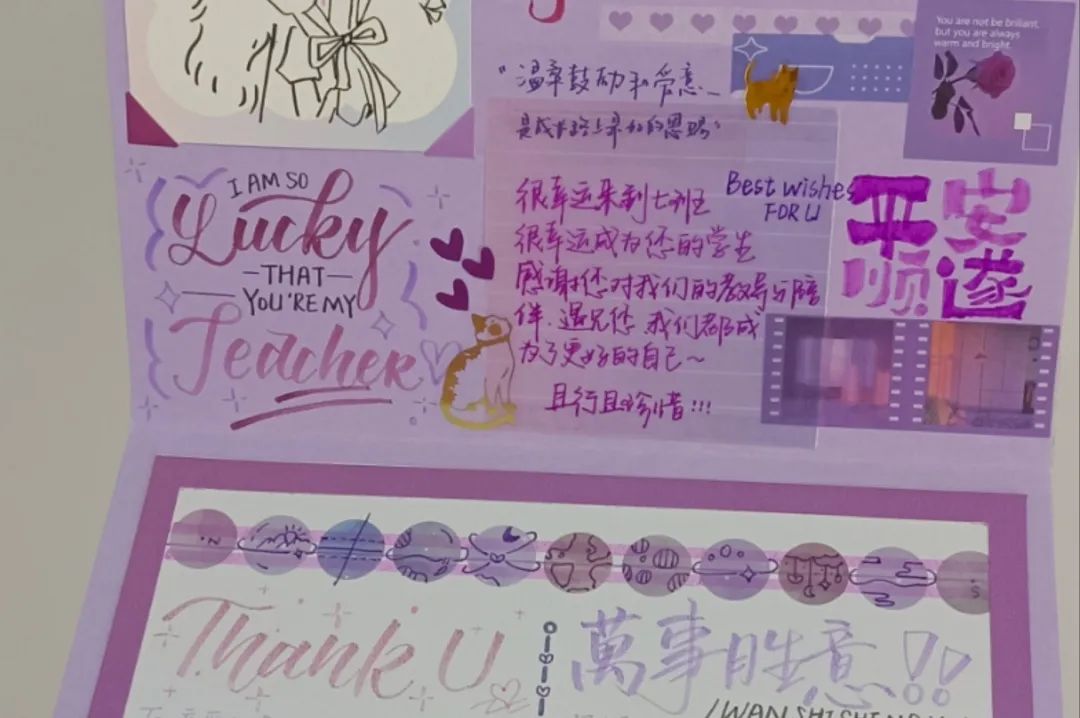 You are not be brilliant,
but you are always
warm and bright.
"温柔鼓励和爱意
是成长路上最好的恩赐"
I AM SO
Lucky
THAT
YOU'RE MY
Teacher
很幸运来到七班
很幸运成为您的学生
感谢您对我们的教导与陪
伴.遇见您 我们都成
为了更好的自己~
且行且珍惜!!!
Best wishes
FOR U
平安
顺遂
Thank U
萬事胜意!!